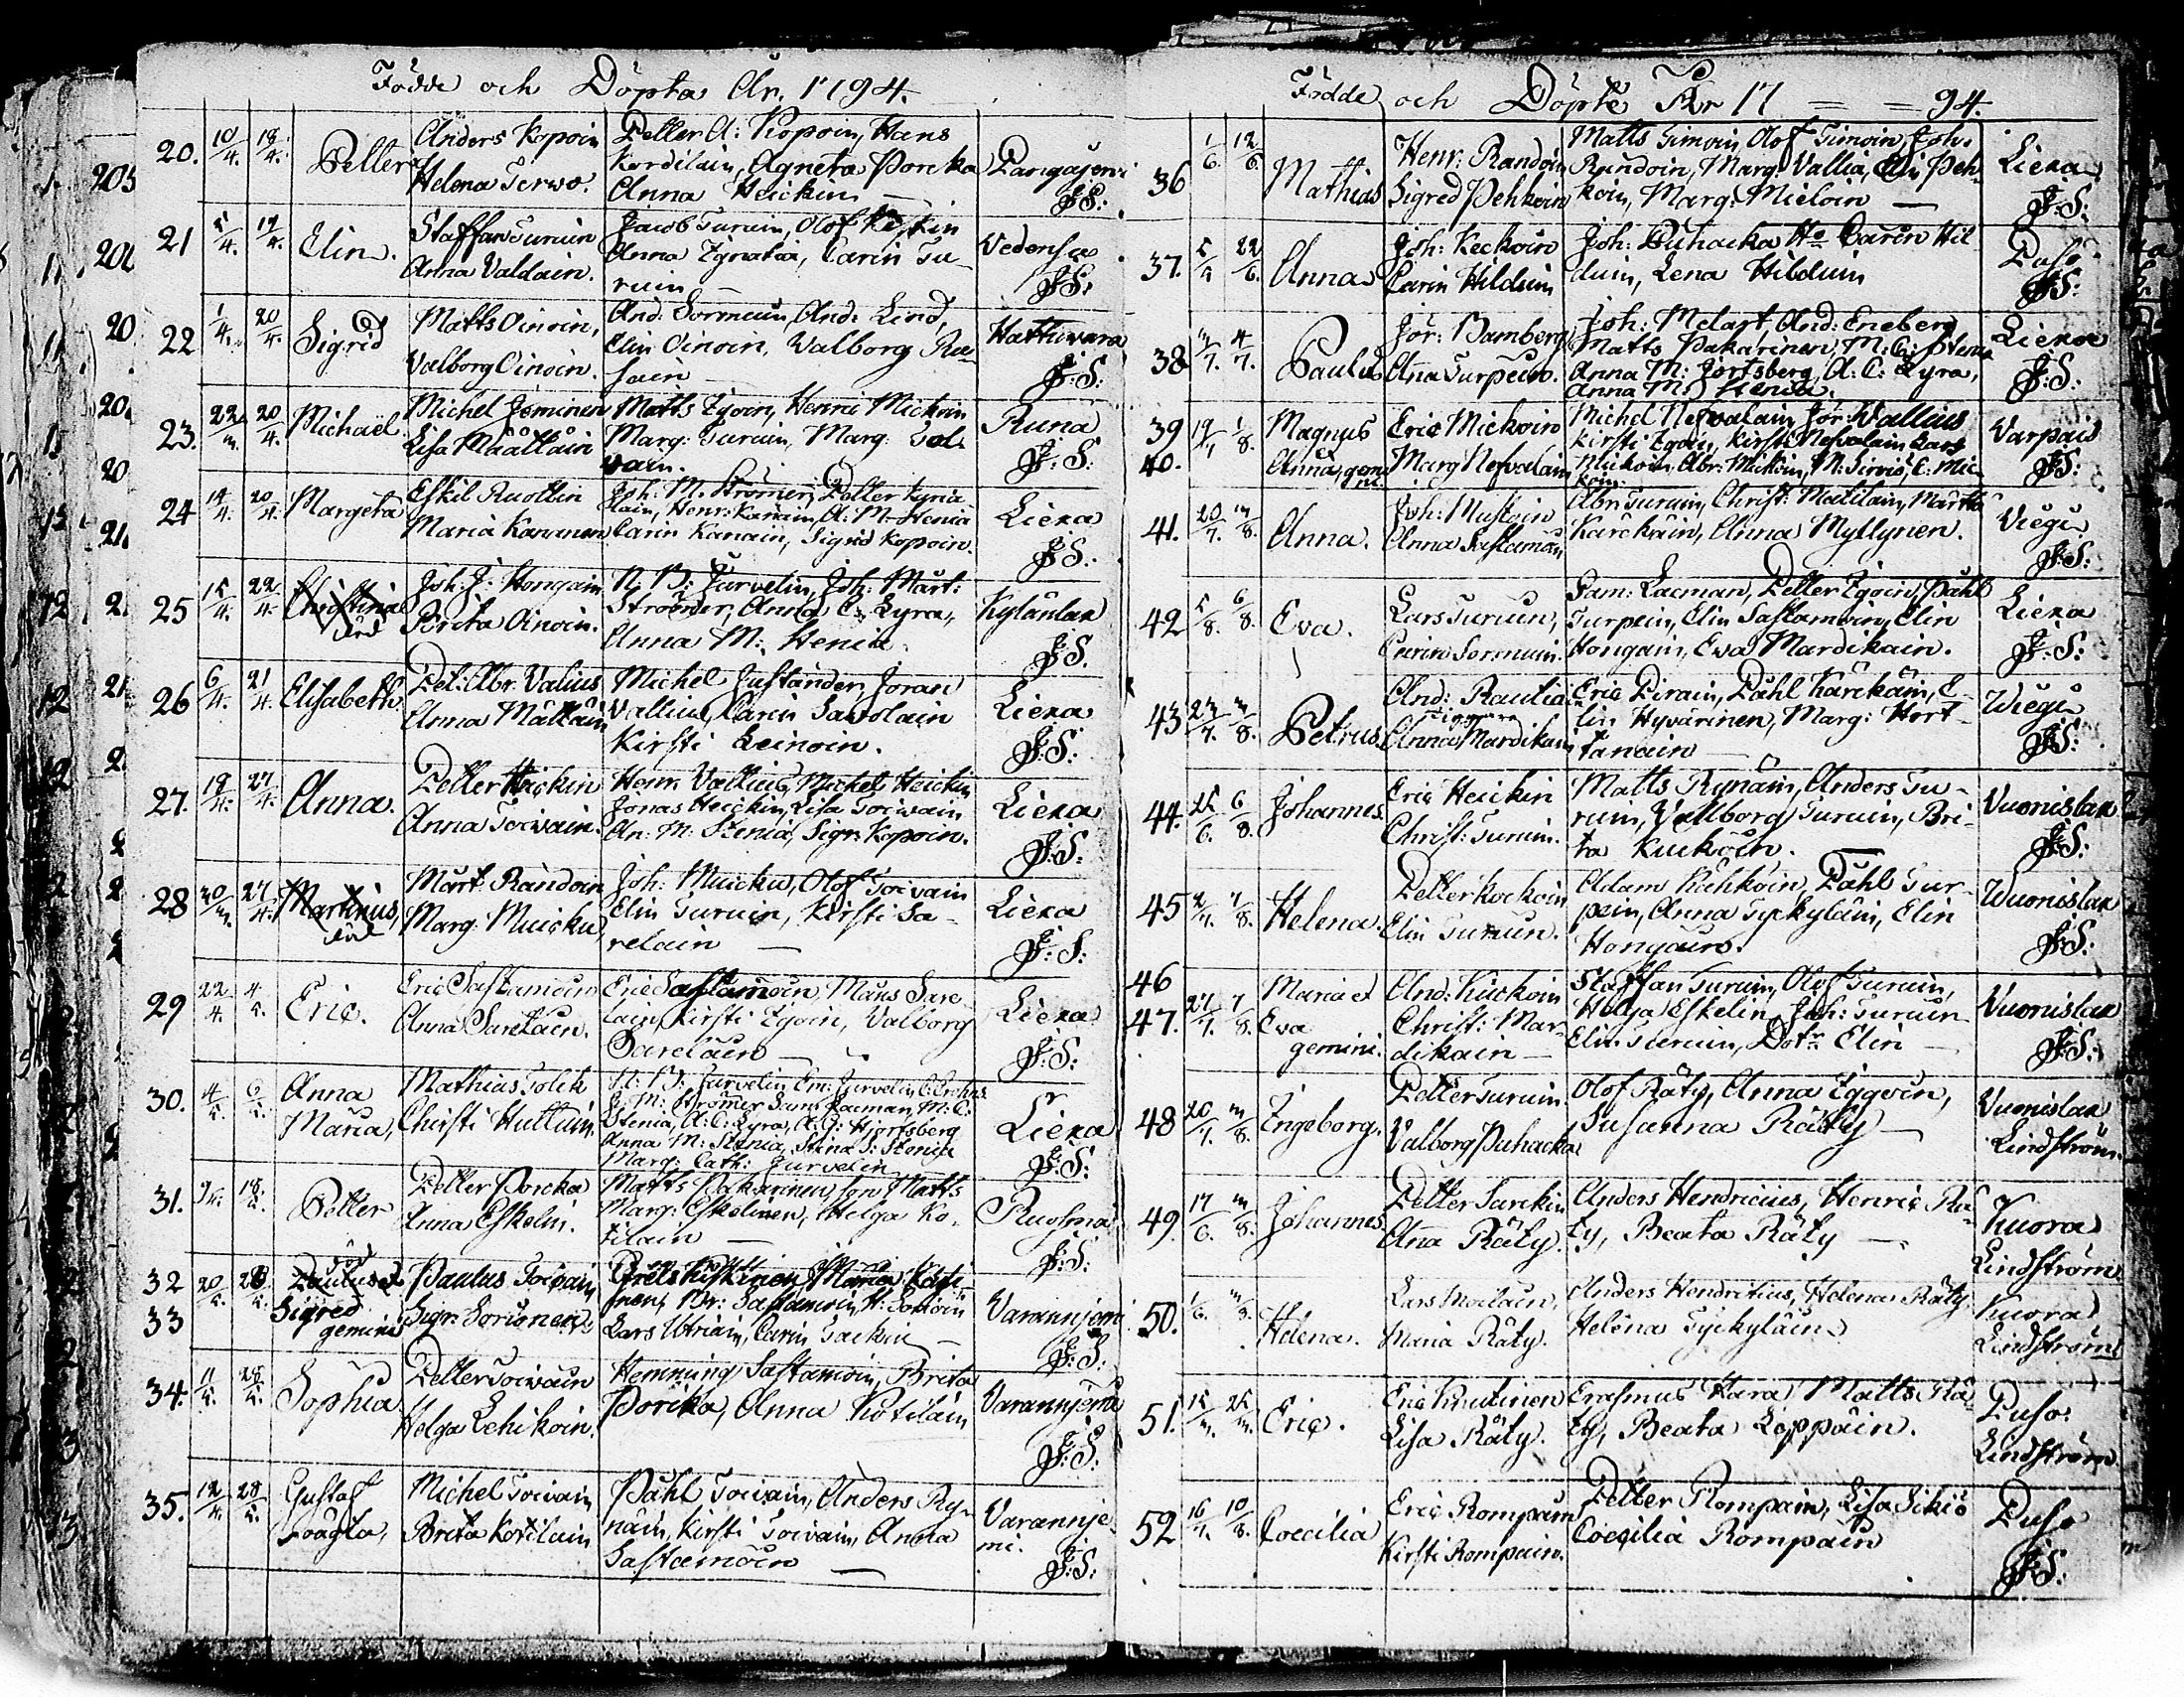 Födde och Döpta År. 1794.
20. 10/4. 18/4. Petter Anders Kopoin Helena Terwo. Petter A: Kopoin, Hans
Kordilain, Agneta Porcka
Anna Heickin — Pangajervi
J:S:
21 5/4. 17/4. Elin. Staffan Turuin Anna Valdain. Jacob Turuin, Olof Kiskin
Anna Ignatia, Carin Tu-
ruin — Vedensu
J:S:
22 1/4. 20/4. Sigrid Matts Oinoin, Valborg Oinoin. And. Sormuin, And: Lind,
Elin Oinoin, Valborg
Hattuwara
J:S:
23. 22/m 20/4. Michaël. Michel Jeminen Lisa Määttäin Matts Egoin, Henric Mickoin
Marg: Turuin, Marg:
vain. Runa
J:S:
24 14/4. 20/4. Margeta Eskil Ruottin Maria Karvonen Joh: M. Strömer, Petter
lain, Henr: Kanain, A: M: Stenia
Carin Kanain, Sigrid Kopoin. Liexa
J:S:
25 15/4. 22/4. Christina död Joh: J: Hongain Brita Oinoin. N: B: Jurvelin, Joh: Mårt:
Strömder, Anna C: Lyra,
Anna M: Stenia. Kylänlax
J:S.
26 6/4. 21/4. Elisabeth. Pet: Abr. Valius Anna Mättäin Michel Justander, Joran
Vallius, Carin Savolain
Kirsti Leinoin. Liexa
J:S:
27. 19/4. 27/4. Anna. Petter Heickin Anna Toivain. Henr. Vallius, Michel Heickin
Jonas Heickin, Lisa Toivain
An: M: Stenia, Sigr: Kopoin. Liexa
J:S:
28 30/m. 27/4. Martinus, död Mårt. Randoin Marg: Muicku, Joh: Muicku, Olof Toivain
Elin Turuin, Kirsti Sa-
relain — Liexa
J:S:
29 22/4. 4/5. Eric. Eric Sastamoin Anna Saretain. Eric Sastamoin, Måns Sare
lain, Kirsti Egoin, Valborg
Sarelain — Liexa
J:S:
30. 4/5. 6/5. Anna
Maria, Mathias Tolck Christi Huttuin N: B: Jurvelin, Em: Jurvelin,
J: M: Strömer, Sam: Lacman, M: C:
Stenia, A: C: Lyra, A: G: Hjortsberg
Anna M: Stenia, Stina S: Stenia
Marg: Cath: Jurvelin Liexa
J:S:
31. 9/5. 18/5. Petter Petter Porcka Anna Eskelin. Matts Pakarinen, son Matts
Marg: Eskelinen, Helga Ko-
tilain — Ruosma
J:S:
32
33 20/5. 28/5. Paulus et
Sigred
gemini Paulus Toivain, Sigr: Sorionen,
Br: Sastamoin,
Lars Utriain, Carin — Varannjemi
J:S:
34. 11/5. 28/5. Sophia Petter Toivain Helga Lehikoin. Hemming Sastamoin, Brita
Porcka, Anna Kotilain Varannjemi
J:S:
35. 12/5. 28/5. Gustaf
Michel Toivain Brita Kotilain Påhl Toivain, Anders Ry-
näin, Kirsti Toivain, Anna
Sastamoin — Varannje
mi.
J:S:
Födde och Döpte År 17 = = 94.
36 1/6. 12/6. Mathias Henr: Randoin Sigred Pehkoin Matts Timoin, Olof Timoin, Joh:
Randoin, Marg: Vallia, Elin Peh-
koin, Marg: Mieloin — Liexa
J:S:
37. 22/6. Anna Joh: Keckoin Carin Hilduin Joh: Puhacka Ho Carin Hil
duin, Lena Hilduin Puso
J:S:
38 4/7. Paulus Jör: Bamberg Anna Turpein. Joh: Melart, And: Eneberg
Matts Pakarinen, M: C: Stenia
Anna M: Hjortsberg, A: C: Lyra,
Anna M: Stenia. Liexa
J:S:
39
40. 19/7 1/8. Magnus
Anna, gemi
ni. Eric Mickoin Marg Nefvalain Michel Nefvalain, Jör: Wallius
Kirsti Egoin, Kirsti Nefvalain, Lars
Mickoin, Abr: Mickoin, M: Sirviö, C: Mic
koin Varpais
J:S:
41. 20/7. m/8. Anna. Joh: Mustoin Anna Sastamoin Abr: Turuin, Christ: Matilain, Märtha
Karckäin, Anna Myllynen. Viegi
J:S:
42 5/8. 6/8. Eva. Lars Turuin, Carin Sormuin. Sam: Lacman, Petter Egoin, Påhl
Turpein, Elin Sastamoin, Elin
Hongain, Eva Mardikain. Liexa
J:S:
43 27/7. m/8. Petrus. And: Rautiain Anna Mardikain Eric Pirain, Påhl Karckäin, E-
lin Hyvärinen, Marg: Hort-
tanain — Wiegi
J:S:
44. 25/6. 6/8. Johannes. Eric Heickin Christ: Turuin. Matts Rynäin, Anders Tu-
ruin, Valborg Turuin, Bri-
ta Kuckoin. — Vuonislax
J:S:
45 2/7. 7/8. Helena. Petter Kockoin Elin Turuin. Adam Kähköin, Påhl Tur-
pein, Anna Tyckyläin, Elin
Hongain. Wuonislax
J:S:
46
47. 27/7. 7/8. Maria et
Eva
gemini. And: Kuckoin Christ: Mar-
dikain — Staffan Turuin, Olof Turuin,
Helga Eskelin, Joh: Turuin
Elin Turuin, Dotr Elin — Vuonislax
J:S:
48 20/7. m/8. Ingeborg. Petter Turuin. Valborg Puhacka Olof Räty, Anna Eggoin,
Susanna Räty — Vuonislax
Lindström.
49. 17/6. m/8. Johannes Petter Surckin Ana Räty. Anders Hendricius, Henric Rä-
ty, Beata Räty — Kuora
Lindström
50. 1/6. m/8. Helena. Lars Moilain, Maria Räty. Anders Hendritius, Helena Räty
Helena Tyckyläin. Kuora
Lindström
51. 15/m. 25/m. Eric. Eric Knutinen Lisa Räty. Erasmus Hara, Matts Rä-
ty, Beata Loppain. Puso.
Lindström
52 16/7. 10/8. Coecilia Eric Rompain Kirsti Rompain. Petter Rompain, Lisa Sikiö
Coecilia Rompain Puso
J:S: